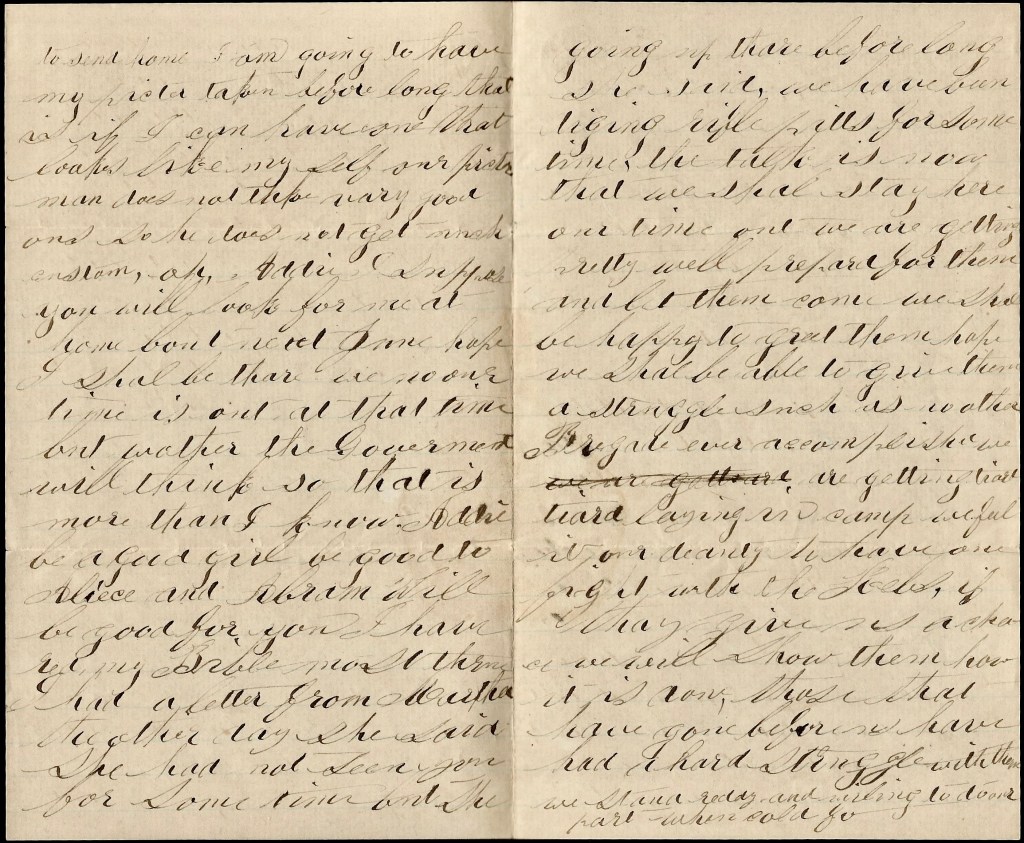 to send home I am going to have
my picter taken before long that
is if I can have one that
lookes like my self our picter
man does not take vary good
ons so he does not get much
custom, oh, Addie I suppose
you will look for me at
home bout next June hope
I shal be thare we no our
time is out at that time
but wather the Goverment
will think so that is
more than I know. Addie
be a good girl be good to
Aliece and Abram Will
be good for you I have
my Bible most
I had a letter from Martha
the other day she said
She had not seen you
for some time but She
going up thare before long
she sid, we have ben
diging rifle pitts for some
time, the talk is now
that we shal stay here
our time out we are getting
pretty well prepard for them
and let them come we shal
be happy to great them hope
we shal be able to give them
a struggle such as no other
Bregade ever accomplishe we
we are are getting tiard
tiard laying in camp we feel
it our deauty to have one
fight with the Rebs, if
thay give us a cha
ce we will show them how
it is don, those that
have gone before us have
had a hard struggle with them
we stand reday and wiling to do our
part when cold fo